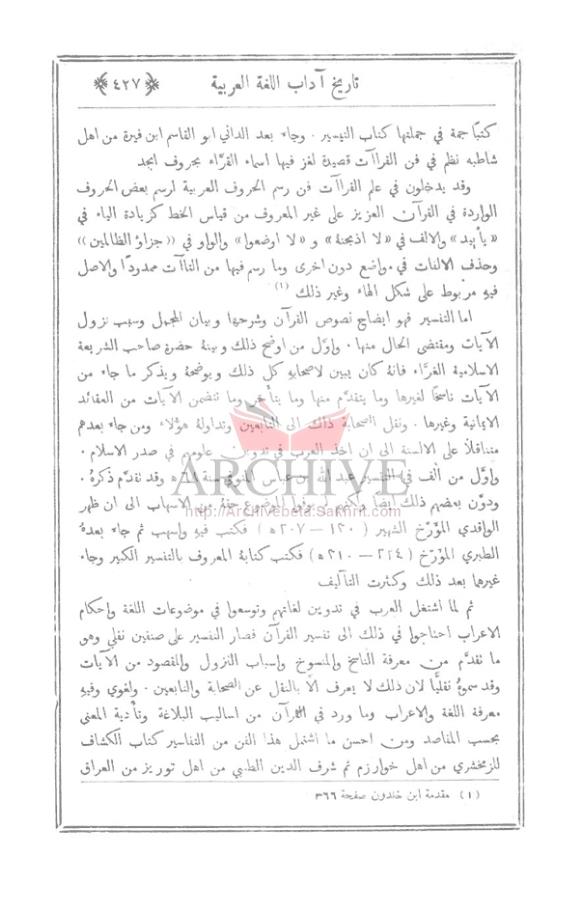 تاريخ آداب اللغة العربية
﴿٤٢٧﴾
كتبًا جمة في جملتها كتاب التيسير . وجاء بعد الداني ابو القاسم ابن فيرة من اهل
شاطبه نظم في فن القراآت قصيدة لغز فيها اسماء القرَّاء بحروف ابجد
وقد يدخلون في علم القراآت فن رسم الحروف العربية لرسم بعض الحروف
الواردة في القرآن العزيز على غير المعروف من قياس الخط كزيادة الياء في
«باييد» والالف في «لا اذبحنة» و «لا اوضعوا» والواو في «جزاؤ الظالمين»
وحذف الالفات في مواضع دون اخرى وما رسم فيها من التاآت ممدودًا والاصل
فيهِ مربوط على شكل الهاء وغير ذلك (١)
اما التفسير فهو ايضاح نصوص القرآن وشرحها وبيان المجمل وسبب نزول
الآيات ومقتضى الحال منها . واوَّل من اوضح ذلك وبينهُ حضرة صاحب الشريعة
الاسلامية الغرَّاء فانهُ كان يبين لاصحابهِ كل ذلك ويوضحهُ ويذكر ما جاء من
الآيات ناسخًا لغيرها وما يتقدَّم منها وما يتأخر وما تتضمن الآيات من العقائد
الايمانية وغيرها . ونقل الصحابة ذلك الى التابعين وتداولهُ هؤلاء ومن جاء بعدهم
متناقلاً على الالسنة الى ان اخذ العرب في تدوين علومهم في صدر الاسلام .
واوَّل من الف في التفسير عبد الله بن عباس المتوفي سنة ٦٨ ه وقد تقدَّم ذكرهُ .
ودوَّن بعضهم ذلك ايضًا الكثيرون وفي الموضوع حقهُ من الاسهاب الى ان ظهر
الواقدي المؤرّخ الشهير ( ١٣٠ — ٢٠٧ ه ) فكتب فيهِ واسهب ثم جاء بعدهُ
الطبري المؤرّخ ( ٢٢٤ — ٣١٠ ه ) فكتب كتابهُ المعروف بالتفسير الكبير وجاء
غيرهما بعد ذلك وكثرت التآليف
ثم لما اشتغل العرب في تدوين لغاتهم وتوسعوا في موضوعات اللغة واحكام
الاعراب احتاجوا في ذلك الى تفسير القرآن فصار التفسير على صنفين نقلي وهو
ما تقدَّم من معرفة الناسخ والمنسوخ واسباب النزول والمقصود من الآيات
وقد سموهُ نقليًّا لان ذلك لا يعرف الاَّ بالنقل عن الصحابة والتابعين . ولغوي وفيهِ
معرفة اللغة والاعراب وما ورد في القرآن من اساليب البلاغة وتأدية المعنى
بحسب المقاصد ومن احسن ما اشتمل هذا الفن من التفاسير كتاب الكشاف
للزمخشري من اهل خوارزم ثم شرف الدين الطيبي من اهل توريز من العراق
(١) مقدمة ابن خلدون صفحة ٣٦٦
ARCHIVE
http://Archivebeta.Sakhrit.com